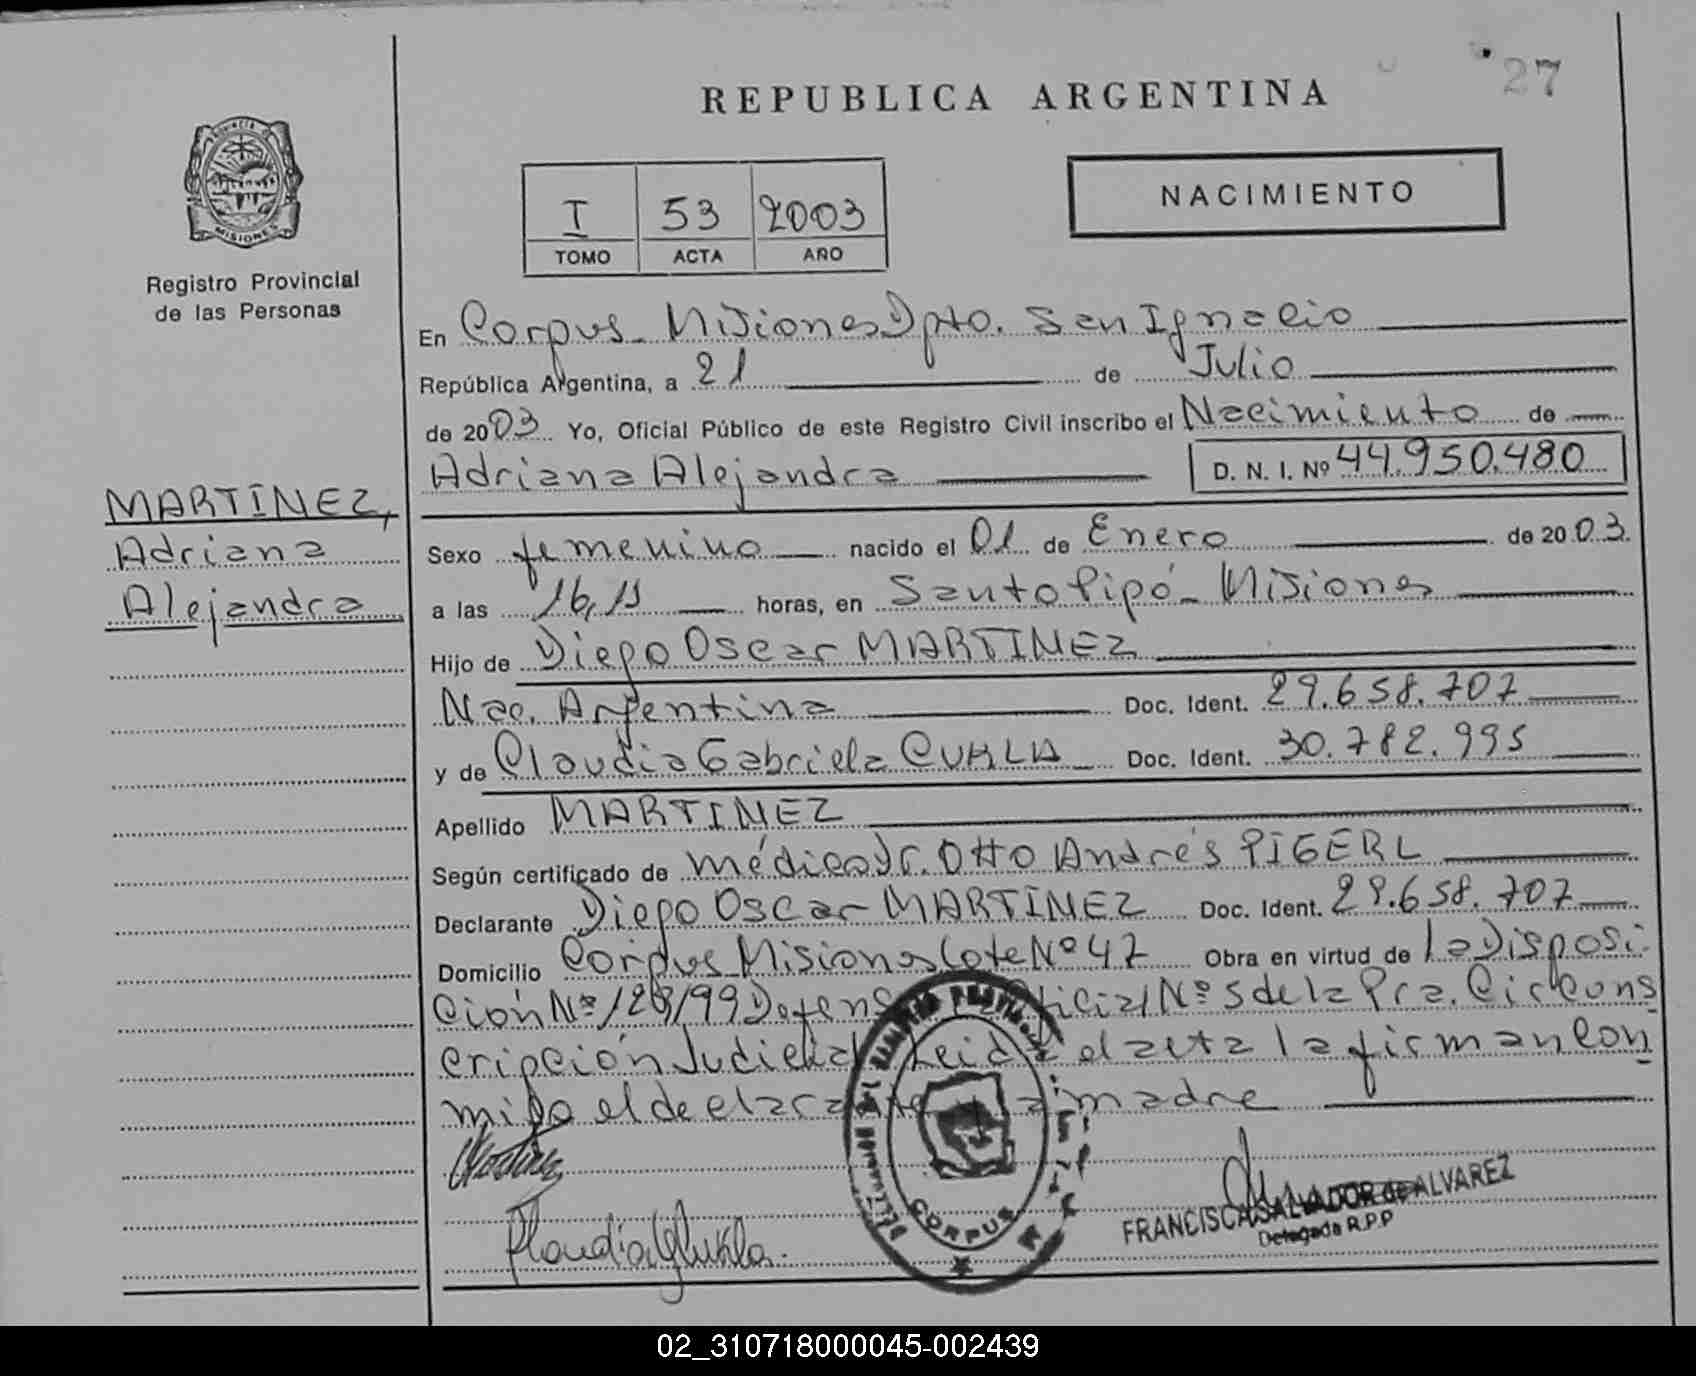 27
REPUBLICA ARGENTINA
NACIMIENTO
I 53 2003
TOMO ACTA AÑO
PROVINCIA DE
MISIONES
Registro Provincial
de las Personas
MARTÍNEZ,
Adriana
Alejandra
En Corpus Misiones Dpto. San Ignacio
República Argentina, a 21 de Julio
de 2003 Yo, Oficial Público de este Registro Civil inscribo el Nacimiento de
Adriana Alejandra D. N. I. Nº 44.950.480
Sexo femenino nacido el 01 de Enero de 2003.
a las 16,15 horas, en Santo Pipó - Misiones
Hijo de Diego Oscar MARTINEZ
Nac. Argentina Doc. Ident. 29.658.707
y de Claudia Gabriela CUKLA Doc. Ident. 30.782.995
Apellido MARTINEZ
Según certificado de médico Dr. Otto Andrés PIGERL
Declarante Diego Oscar MARTÍNEZ Doc. Ident. 29.658.707
Domicilio Corpus Misiones Lote Nº 47 Obra en virtud de la Disposi-
ción Nº 128/99 Oficial Nº 5 de la Pra. Circuns
cripción Judicial Leida el acta la firman con
migo el declarante madre
Claudia G Cukla.
CORPUS
FRANCISCA SALVADOR de ALVAREZ
Delegada R.P.P
02_310718000045-002439